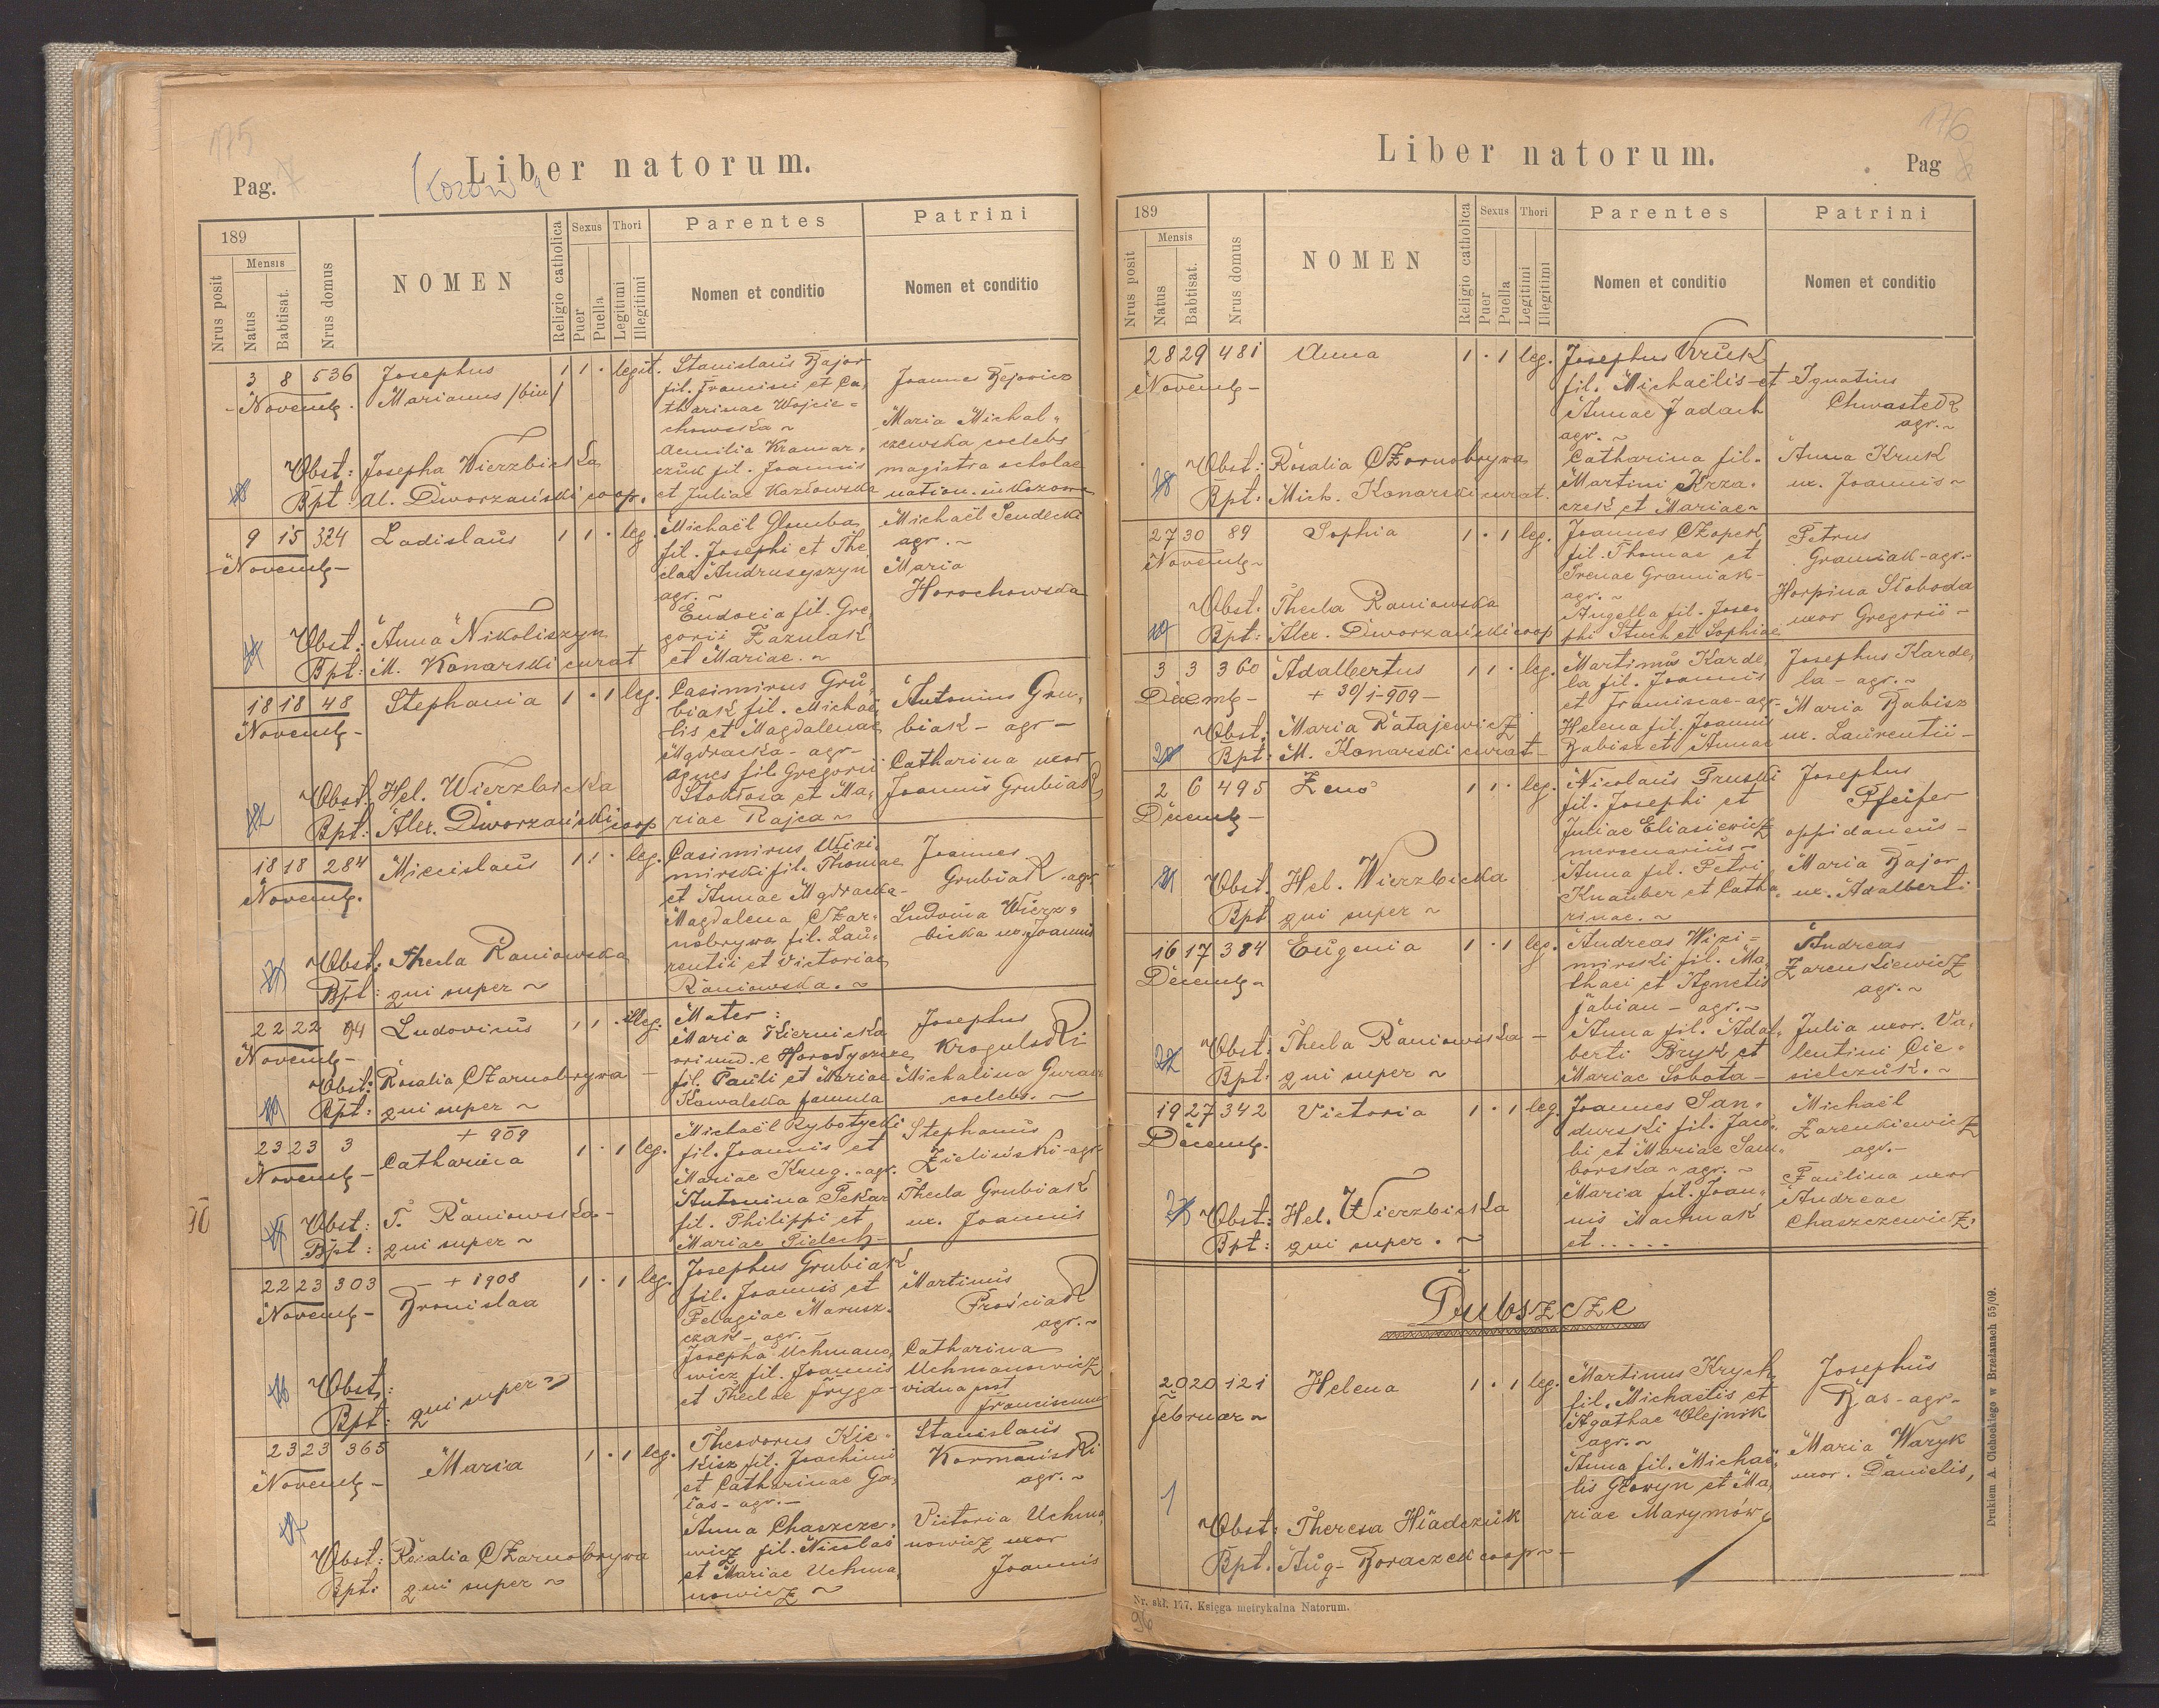 175
Pag. 7
Liber natorum.
Kozowa
189
Nrus posit
Mensis
Natus
Babtisat.
Nrus domus
NOMEN
Religio catholica
Sexus
Puer
Puella
Thori
Legitimi
Illegitimi
Parentes
Nomen et conditio
Patrini
Nomen et conditio
3 8 536 Josephus 1 1 · legit.
Novemb. Marianus /bin/
Obst: Josepha Wierzbicka
Bpt: Al. Dworzański coop.
Stanislaus Bajor
fil. Francisci et Ca,
tharinae Wojcie=
chowska ~
Aemilia Kramar,
czuk fil. Joannis
et Juliae Kozłowska
Joannes Bejowicz
Maria Michal,
czewska coelebs
magistra scholae
nation. in Kozowa
9 15 324 Ladislaus 1 1 · leg.
Novemb-
Obst: Anna Nikoliszyn
Bpt: M. Konarski curat
Michaël Glomba
fil. Josephi et The,
clae Andrusyszyn
agr. ~
Eudocia fil. Gre,
gorii Zazulak
et Mariae. ~
Michaël Sendecki
agr. ~
Maria
Horochowska
18 18 48 Stephania 1 · 1 leg.
Novemb-
Obst: Hel. Wierzbicka
Bpt: Alex. Dworzański coop
Casimirus Gru,
biak fil. Michaë,
lis et Magdalenae
Mądracka - agr-
Agnes fil. Gregorii
Stokłosa et Ma,
riae Rajca ~
Antonius Gru,
biak - agr -
Catharina uxor
Joannis Grubiak
18 18 284 Miecislaus 1 1 · leg.
Novemb.
Obst: Thecla Raniowska
Bpt: qui super ~
Casimirus Wizi,
mirski fil. Thomae
et Annae Mądracka-
Magdalena Czar=
nobrywa fil. Lau,
rentii et Victoriae
Raniowska. ~
Joannes
Grubiak. agr
Ludovica Wierz,
bicka ux. Joannis
22 22 94 Ludovicus 1 1 · illeg.
Novemb-
Obst: Rosalia Czarnobrywa
Bpt: qui super ~
Mater:
Maria Kiernicka
oriund. e Horodyszcze
fil. Pauli et Mariae
Kowalska famula
Josephus
Krogulski
Michalina
coelebs. ~
23 23 3 + 909 1 · 1 leg.
Novemb- Catharina
Obst: T. Raniowska-
Bpt: qui super ~
Michaël Rybotycki
fil. Joannis et
Mariae Krug. - agr.
Antonina Pekar
fil. Philippi et
Mariae Pielech-
Stephanus
Zieliński - agr
Thecla Grubiak
ux. Joannis
22 23 303 + 1908 1 · 1 leg.
Novemb- Bronislaa
Obst:
Bpt: qui super ~
Josephus Grubiak
fil. Joannis et
Pelagiae Marusz,
czak - agr. -
Josepha Uchmano,
wicz fil. Joannis
et Theclae Fryga
Martinus
Prościak
agr. ~
Catharina
Uchmanowicz
vidua post
Franciscum
23 23 365 Maria 1 · 1 leg.
Novemb-
Obst: Rosalia Czarnobrywa
Bpt: qui super ~
Theodorus Kie-
kisz fil. Joachimi
et Catharinae Ga,
las - agr. -
Anna Chaszcze,
wicz fil. Nicolai
et Mariae Uchma,
nowicz ~
Stanislaus
Kormański
agr. ~
Victoria Uchma,
nowicz uxor
Joannis
176
Liber natorum.
Pag 8
189
Nrus posit
Mensis
Natus
Babtisat.
Nrus domus
NOMEN
Religio catholica
Sexus
Puer
Puella
Thori
Legitimi
Illegitimi
Parentes
Nomen et conditio
Patrini
Nomen et conditio
28 29 481 Anna 1 · 1 leg.
Novemb-
Obst: Rosalia Czornobrywa
Bpt: Mich. Konarski curat.
Josephus Kruk
fil. Michaëlis et
Annae Jadach
agr. ~
Catharina fil.
Martini Krza,
czek et Mariae ~
Ignatius
Chwastek
agr. ~
Anna Kruk
ux. Joannis ~
27 30 89 Sophia 1 · 1 leg.
Novemb~
Obst. Thecla Raniowska
Bpt: Alex. Dworzański coop
Joannes Czopek
fil. Thomae et
Irenae Graniak-
agr. ~
Angella fil. Jose,
phi Stuch et Sophiae
Petrus
Graniak - agr.-
Horpina Słoboda
uxor Gregorii -
3 3 360 Adalbertus 1 1 · leg.
Decemb- + 30/1-909-
Obst. Maria Ratajewicz
Bpt: M. Konarski curat-
Martinus Karde,
la fil. Joannis
et Franiscae - agr-
Helena fil. Joannis
Babisz et Annae
Josephus Karde,
la - agr. ~
Maria Babisz
ux. Laurentii -
2 6 495 Zeno 1 1 · leg.
Decemb-
Obst. Hel. Wierzbicka
Bpt qui super ~
Nicolaus Pruski
fil. Josephi et
Juliae Eliasiewicz
mercenarius ~
Anna fil. Petri
Knauber et Catha,
rinae. ~
Josephus
Pfeifer
oppidaneus -
Maria Bajor
ux. Adalberti
16 17 384 Eugenia 1 · 1 leg.
Decemb~
Obst: Thecla Raniowska -
Bpt: qui super ~
Andreas Wizi=
mirski fil. Ma,
thaei et Agnetis
Fabian - agr. ~
Anna fil. Adal,
berti Bryk et
Mariae Sobota -
Andreas
Zarenkiewicz
agr. ~
Julia uxor. Va,
lentini Cie=
sielczuk. ~
19 27 342 Victoria 1 · 1 leg.
Decemb.
Obst: Hel. Wierzbicka
Bpt: qui super. ~
Joannes San,
durski fil. Jaco,
bi et Mariae Sam,
borska - agr. ~
Maria fil. Joan,
nis Machnak
et .....
Michaël
Zarenkiewicz
agr.-
Paulina uxor
Andreae
Chaszczewicz.
Dubszcze
20 20 121 Helena 1 · 1 leg.
Februar ~
1
Obst: Theresa Hladczuk
Bpt. Aug. Boraczek coop ~
Martinus Krych
fil. Michaëlis et
Agathae Olejnik
agr. ~
Anna fil. Michaë,
lis Głowyn et Ma,
riae Marymów
Josephus
Bas - agr-
Maria Waryk
uxor. Danielis,
Nr. skł. 177. Księga metrykalna Natorum.
96
Drukiem A. Cichockiego w Brzeżanach 55/09.